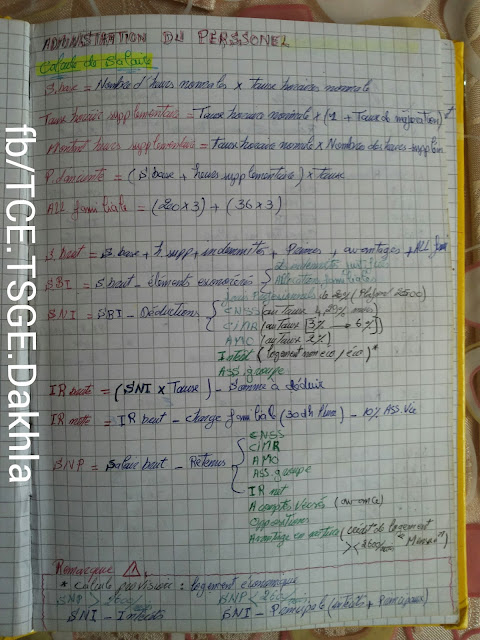 ADMINISTRATION DU PERSSONEL
Calcule de Salaire
S.base = Nombre d'heures normales × taux horaires normale
Taux horaire supplementaire = Taux horaire normale × (1 + Taux de majoration)
Montant heures supplementaire = Taux horaire normale × Nombre des heures supplem
P.d'ancienneté = (S base + heures supplementaire) × taux
All familiale = (200 × 3) + (36 × 3)
S.brut = S.base + h.supp + indemnités + Primes + avantages + ALL fam
SBI = S.brut - éléments exonérés
Allocations familiales
SNI = SBI - Déductions
frais Professionnels (Plafond 2500)
CNSS (au taux
CIMR (au taux [3% → 6%])
AMO (au taux 2%)
Intérêt (logement non éco / éco)*
ASS groupe
IR brute = (SNI × Taux) - Somme à déduire
IR nette = IR brut - charge familiale (30dh Plura) - 10% ASS.Vie
SNP = Salaire brut - Retenus
CNSS
CIMR
AMO
ASS groupe
IR net
Acomptes Versés (avance)
Oppositions
Avantage en nature (crédit de logement
Remarque ⚠
* Calcule prévision : logement économique
SNP > SNP <
SNI - Intérêts SNI - Principale (intérêt + Principaux)
fb/TCE.TSGE.Dakhla